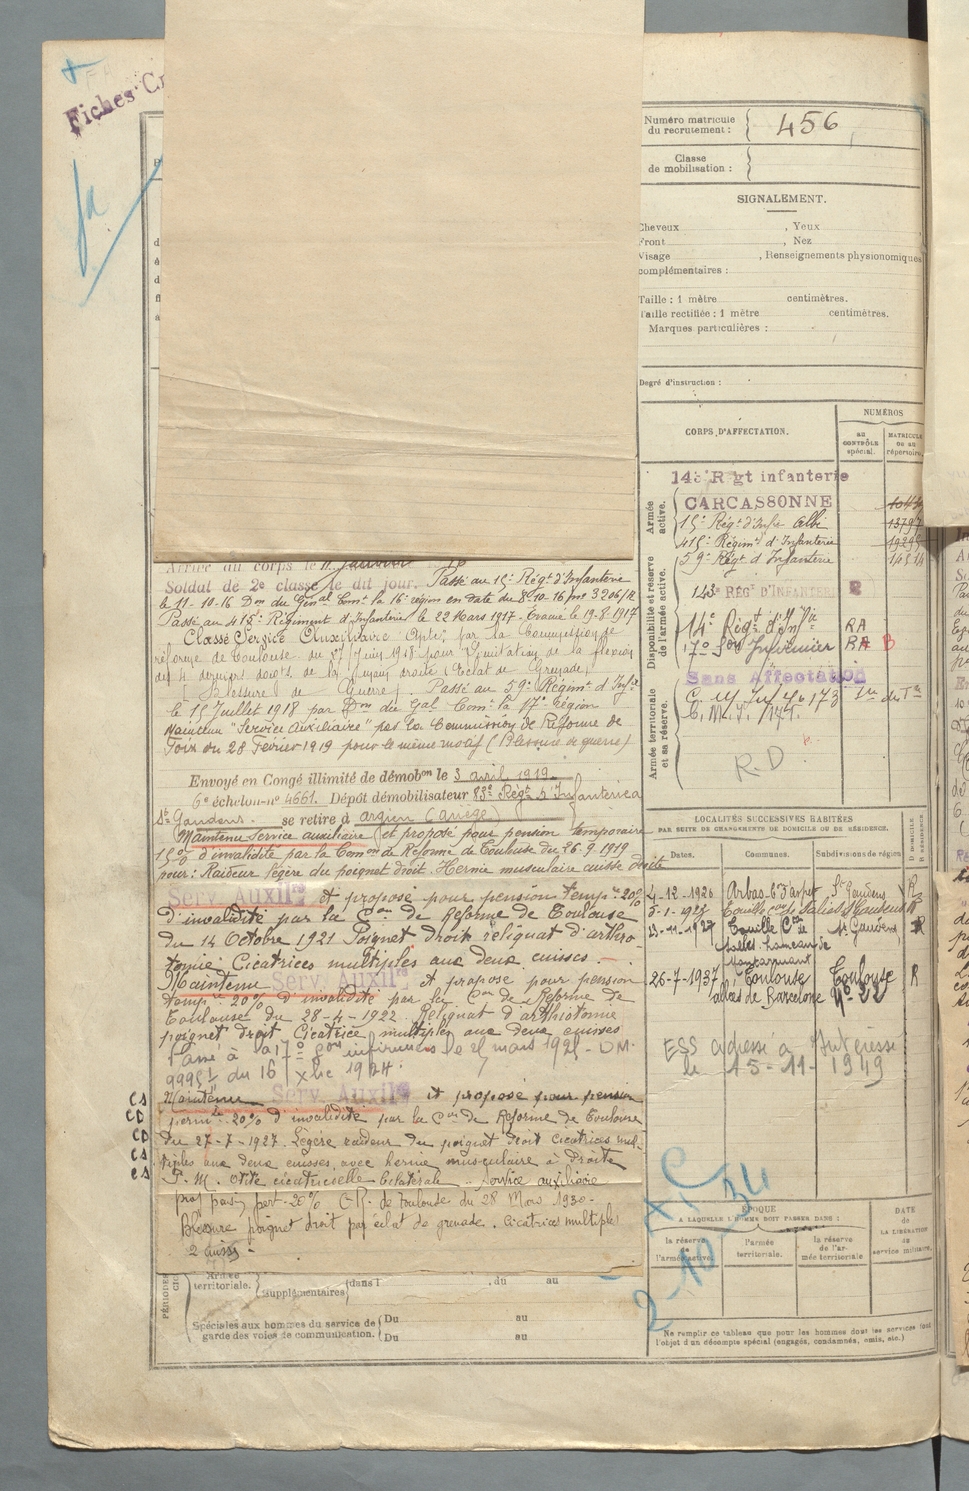 Fiches
Numéro matricule
du recrutement :
456
Classe
de mobilisation :
SIGNALEMENT.
Cheveux , Yeux
Front , Nez
Visage , Renseignements physionomiques
complémentaires :
Taille : 1 mètre centimètres.
Taille rectifiée : 1 mètre centimètres.
Marques particulières :
Degré d'instruction :
CORPS D'AFFECTATION.
NUMÉROS
au
CONTRÔLE
spécial.
MATRICULE
ou au
répertoire.
Armée
active.
143e Rgt infanterie
CARCASSONNE
15e Régt d'Infie Albi
415e Régimt d'Infanterie
59e Régt d'Infanterie
Disponibilité et réserve
de l'armée active.
143e RÉGT D'INFANTERIE
14e Régt d'Infie RA
17e Son Infirmier RA B
Armée territoriale
et sa réserve.
Sans Affectation
R.D
Arrivé au corps le 11 Janvier
Soldat de 2e classe le dit jour. Passé au 15e Régt d'Infanterie
le 11-10-16 Don du Génal Comt la 16e région en date du 8-10-16 no 3206/R
Passé au 415e Régiment d'Infanterie le 22 Mars 1917. Evacué le 19-8-1917
Classé Service Auxiliaire Apte, par la Commission de
réforme de Toulouse du 27 Juin 1918 pour limitation de la flexion
des 4 derniers doigts de la main droite (Eclat de Grenade)
(Blessure de Guerre). Passé au 59e Régimt d'Infie
le 15 Juillet 1918 par Don du Gal Comt la 17e Région
Maintenu "Service Auxiliaire" par la Commission de Réforme de
Foix du 28 Février 1919 pour le même motif (Blessure de guerre)
Envoyé en Congé illimité de démobon le 3 avril 1919.
6e échelon no 4661. Dépôt démobilisateur 83e Régt d'Infanterie à
St Gaudens. se retire à argien (ariège)
Maintenu Service auxiliaire et proposé pour pension temporaire
15% d'invalidité par la Comon de Réforme de Toulouse du 26.9.1919
pour : Raideur légère du poignet droit. Hernie musculaire cuisse droite
Serv. Auxilre et proposé pour pension temp.re 20%
d'invalidité par la Con de Réforme de Toulouse
du 14 Octobre 1921 Poignet droit reliquat d'arthro-
tomie Cicatrices multiples aux deux cuisses.
Maintenu Serv. Auxilre et proposé pour pension
temp.re 20% d'invalidité par la Con de Réforme de
Toulouse du 28-4-1922. Reliquat d'arthrotomie
poignet droit Cicatrice multiples aux deux cuisses
Passé à la 17e Son infirmiers le 25 mars 1925 - DM.
9995 du 16 Xbre 1924.
CS Maintenu Serv. Auxilre et proposé pour pension
CD perm.te 20% d'invalidité par la Con de Réforme de Toulouse
CD du 27-7-1927. Légère raideur du poignet droit cicatrices mul-
CS tiples aux deux cuisses avec hernie musculaire à droite
CS P.M. Otite cicatricielle bilatérale - service auxiliaire
prop pension pert. 20% C.R. de Toulouse du 28 Mars 1930-
Blessure poignet droit par éclat de grenade. Cicatrices multiples
2 cuisses -
LOCALITÉS SUCCESSIVES HABITÉES
PAR SUITE DE CHANGEMENTS DE DOMICILE OU DE RÉSIDENCE.
Dates. Communes. Subdivisions de région
D DOMICILE
R RÉSIDENCE
4-12-1920 Arbas St Gaudens R
5-1-1923 Touille Salies St Gaudens R
23-11-1927 Touille Con de St Gaudens R
Salies hameau de
26-7-1937 Toulouse Toulouse R
allées de Barcelone No 22
ESS adresse à Intéressé
le 15-11-1949
ÉPOQUE
A LAQUELLE L'HOMME DOIT PASSER DANS :
DATE
de
LA LIBÉRATION
du
service militaire.
la réserve
de
l'armée active.
l'armée
territoriale.
la réserve
de l'ar-
mée territoriale
2-10-34
Ne remplir ce tableau que pour les hommes dont les services font
l'objet d'un décompte spécial (engagés, condamnés, omis, etc.)
PÉRIODES
Armée
territoriale.
supplémentaires
dans l , du au
Spéciales aux hommes du service de
garde des voies de communication.
Du au
Du au